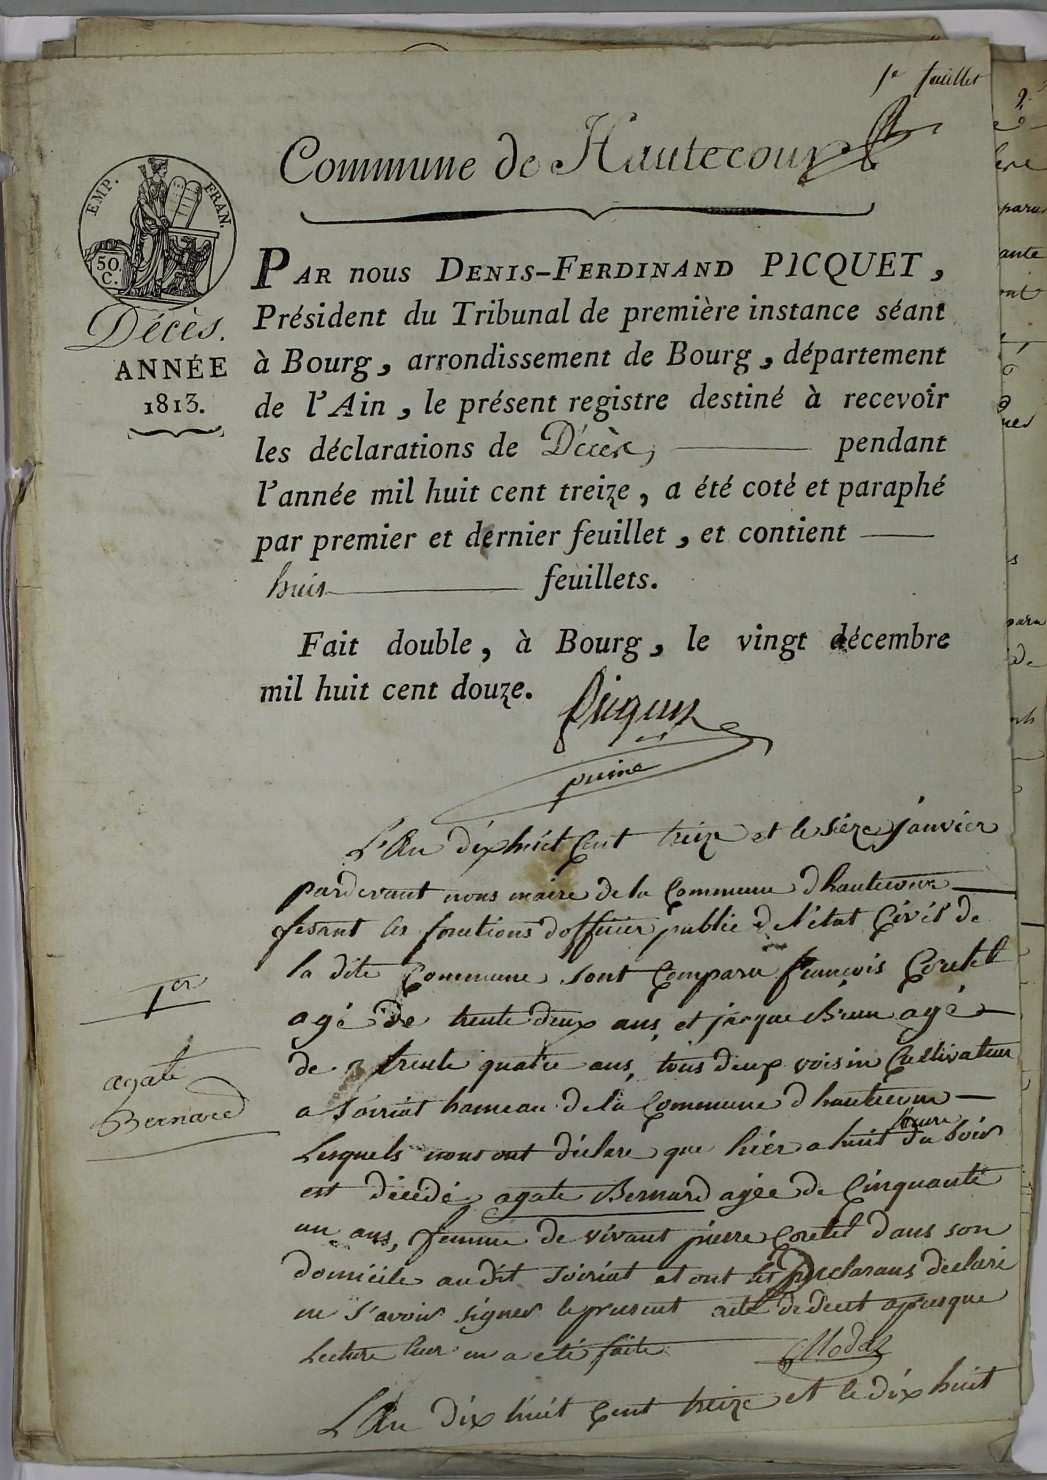 1er feuillet
Commune de Hautecour
EMP. FRAN.
50 C.
Décès.
ANNÉE
1813.
PAR nous DENIS-FERDINAND PICQUET,
Président du Tribunal de première instance séant
à Bourg, arrondissement de Bourg, département
de l'Ain, le présent registre destiné à recevoir
les déclarations de Décès, pendant
l'année mil huit cent treize, a été coté et paraphé
par premier et dernier feuillet, et contient
huit feuillets.
Fait double, à Bourg, le vingt décembre
mil huit cent douze.
Picquet
L'An dix huit Cent treize et le seize janvier
pardevant nous maire de la Commune d hautecour
fesant les fonctions d'officier public de l'état Civil de
la dite Commune sont Comparu françois Coretel
agé de trente deux ans et jacque Brun agé
de trente quatre ans, tous deux voisin Cultivateur
a Soiriat hameau de la Commune d hautecour
Lesquels nous ont déclare que hier a huit heure du soir
est décédé agate Bernard agée de Cinquante
un ans, femme de vivant pierre Coretel dans son
domicile au dit Soiriat et ont les declarans déclaré
ne s'avoir signer le present acte de decet apres que
Lecture leur en a eté faite
1er
agate
Bernard
L'An dix huit Cent treize et le dix huit